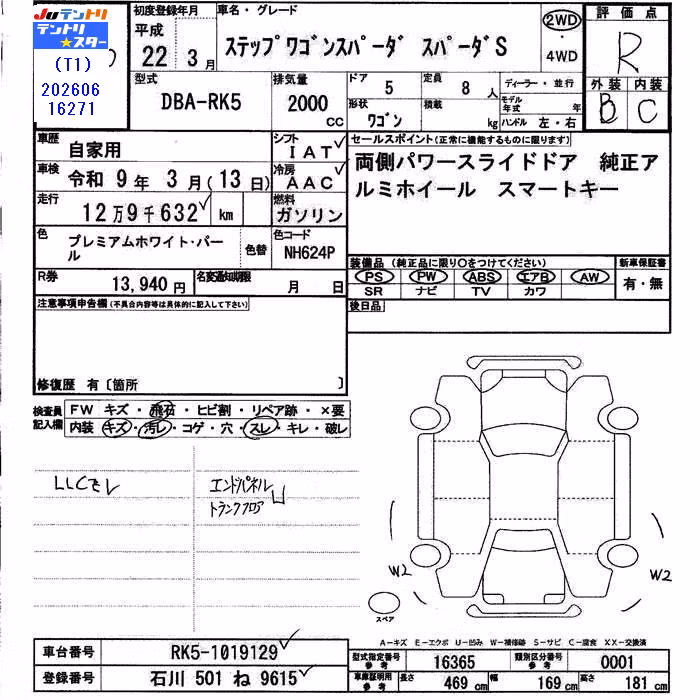 Juテントリ
テントリ★スター
(T1)
202606
16271
初度登録年月
平成
22 3月
車名・グレード
ステップワゴンスパーダ スパーダS
2WD
・
4WD
評価点
R
外装 内装
B C
型式
DBA-RK5
排気量
2000 cc
ドア
5
定員
8 人
形状
ワゴン
積載
kg
ディーラー・並行
モデル年式 年
ハンドル 左・右
車歴
自家用
シフト
IAT
車検
令和 9年 3月(13日)
冷房
AAC
走行
12万9千632 km
燃料
ガソリン
色
プレミアムホワイト・パール
色替
色コード
NH624P
R券
13,940円
名変通知期限
月 日
セールスポイント(正常に機能するものに限ります)
両側パワースライドドア 純正ア
ルミホイール スマートキー
装備品(純正品に限り○をつけてください)
PS PW ABS エアB AW
SR ナビ TV カワ
新車保証書
有・無
後日品
注意事項申告欄(不具合内容等は具体的に記入して下さい)
修復歴 有〔箇所 〕
検査員
記入欄
FW キズ・飛石・ヒビ割・リペア跡・×要
内装 キズ・汚レ・コゲ・穴・スレ・キレ・破レ
エンドパネル
トランクフロア U
W2
W2
スペア
A-キズ E-エクボ U-凹み W-補修跡 S-サビ C-腐食 XX-交換済
車台番号 RK5-1019129
登録番号 石川 501 ね 9615
型式指定番号
参考
16365
類別区分番号
参考
0001
車庫証明用
参考
長さ 469 cm 幅 169 cm 高さ 181 cm